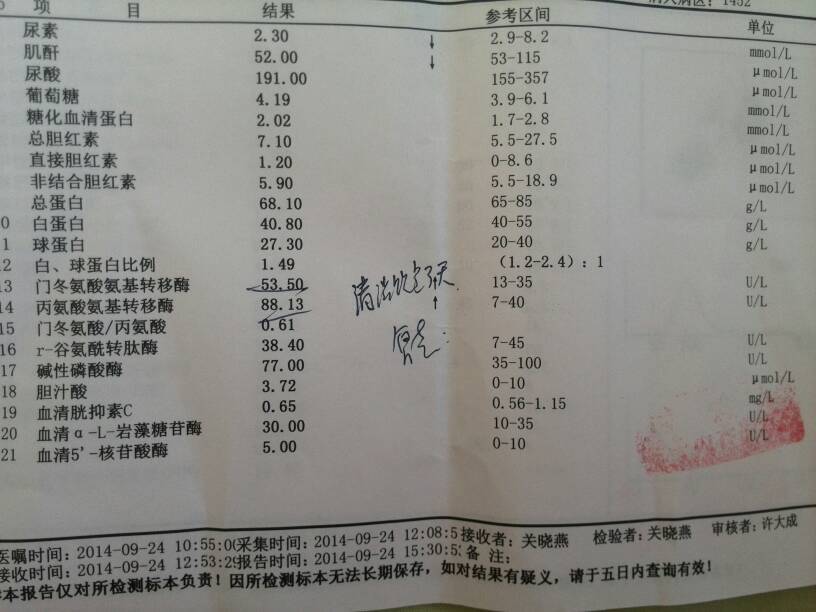 项 目 结果 参考区间 单位
尿素 2.30 ↓ 2.9-8.2 mmol/L
肌酐 52.00 ↓ 53-115 μmol/L
尿酸 191.00 155-357 μmol/L
葡萄糖 4.19 3.9-6.1 mmol/L
糖化血清蛋白 2.02 1.7-2.8 mmol/L
总胆红素 7.10 5.5-27.5 μmol/L
直接胆红素 1.20 0-8.6 μmol/L
非结合胆红素 5.90 5.5-18.9 μmol/L
总蛋白 68.10 65-85 g/L
0 白蛋白 40.80 40-55 g/L
1 球蛋白 27.30 20-40 g/L
12 白、球蛋白比例 1.49 (1.2-2.4):1
13 门冬氨酸氨基转移酶 53.50 13-35 U/L
14 丙氨酸氨基转移酶 88.13 ↑ 7-40 U/L
15 门冬氨酸/丙氨酸 0.61
16 r-谷氨酰转肽酶 38.40 7-45 U/L
17 碱性磷酸酶 77.00 35-100 U/L
18 胆汁酸 3.72 0-10 μmol/L
19 血清胱抑素C 0.65 0.56-1.15 mg/L
20 血清α-L-岩藻糖苷酶 30.00 10-35 U/L
21 血清5'-核苷酸酶 5.00 0-10 U/L
医嘱时间:2014-09-24 10:55:0 采集时间:2014-09-24 12:08:5 接收者:关晓燕 检验者:关晓燕 审核者:许大成
接收时间:2014-09-24 12:53:29 报告时间:2014-09-24 15:30:5 备注:
本报告仅对所检测标本负责!因所检测标本无法长期保存,如对结果有疑义,请于五日内查询有效!